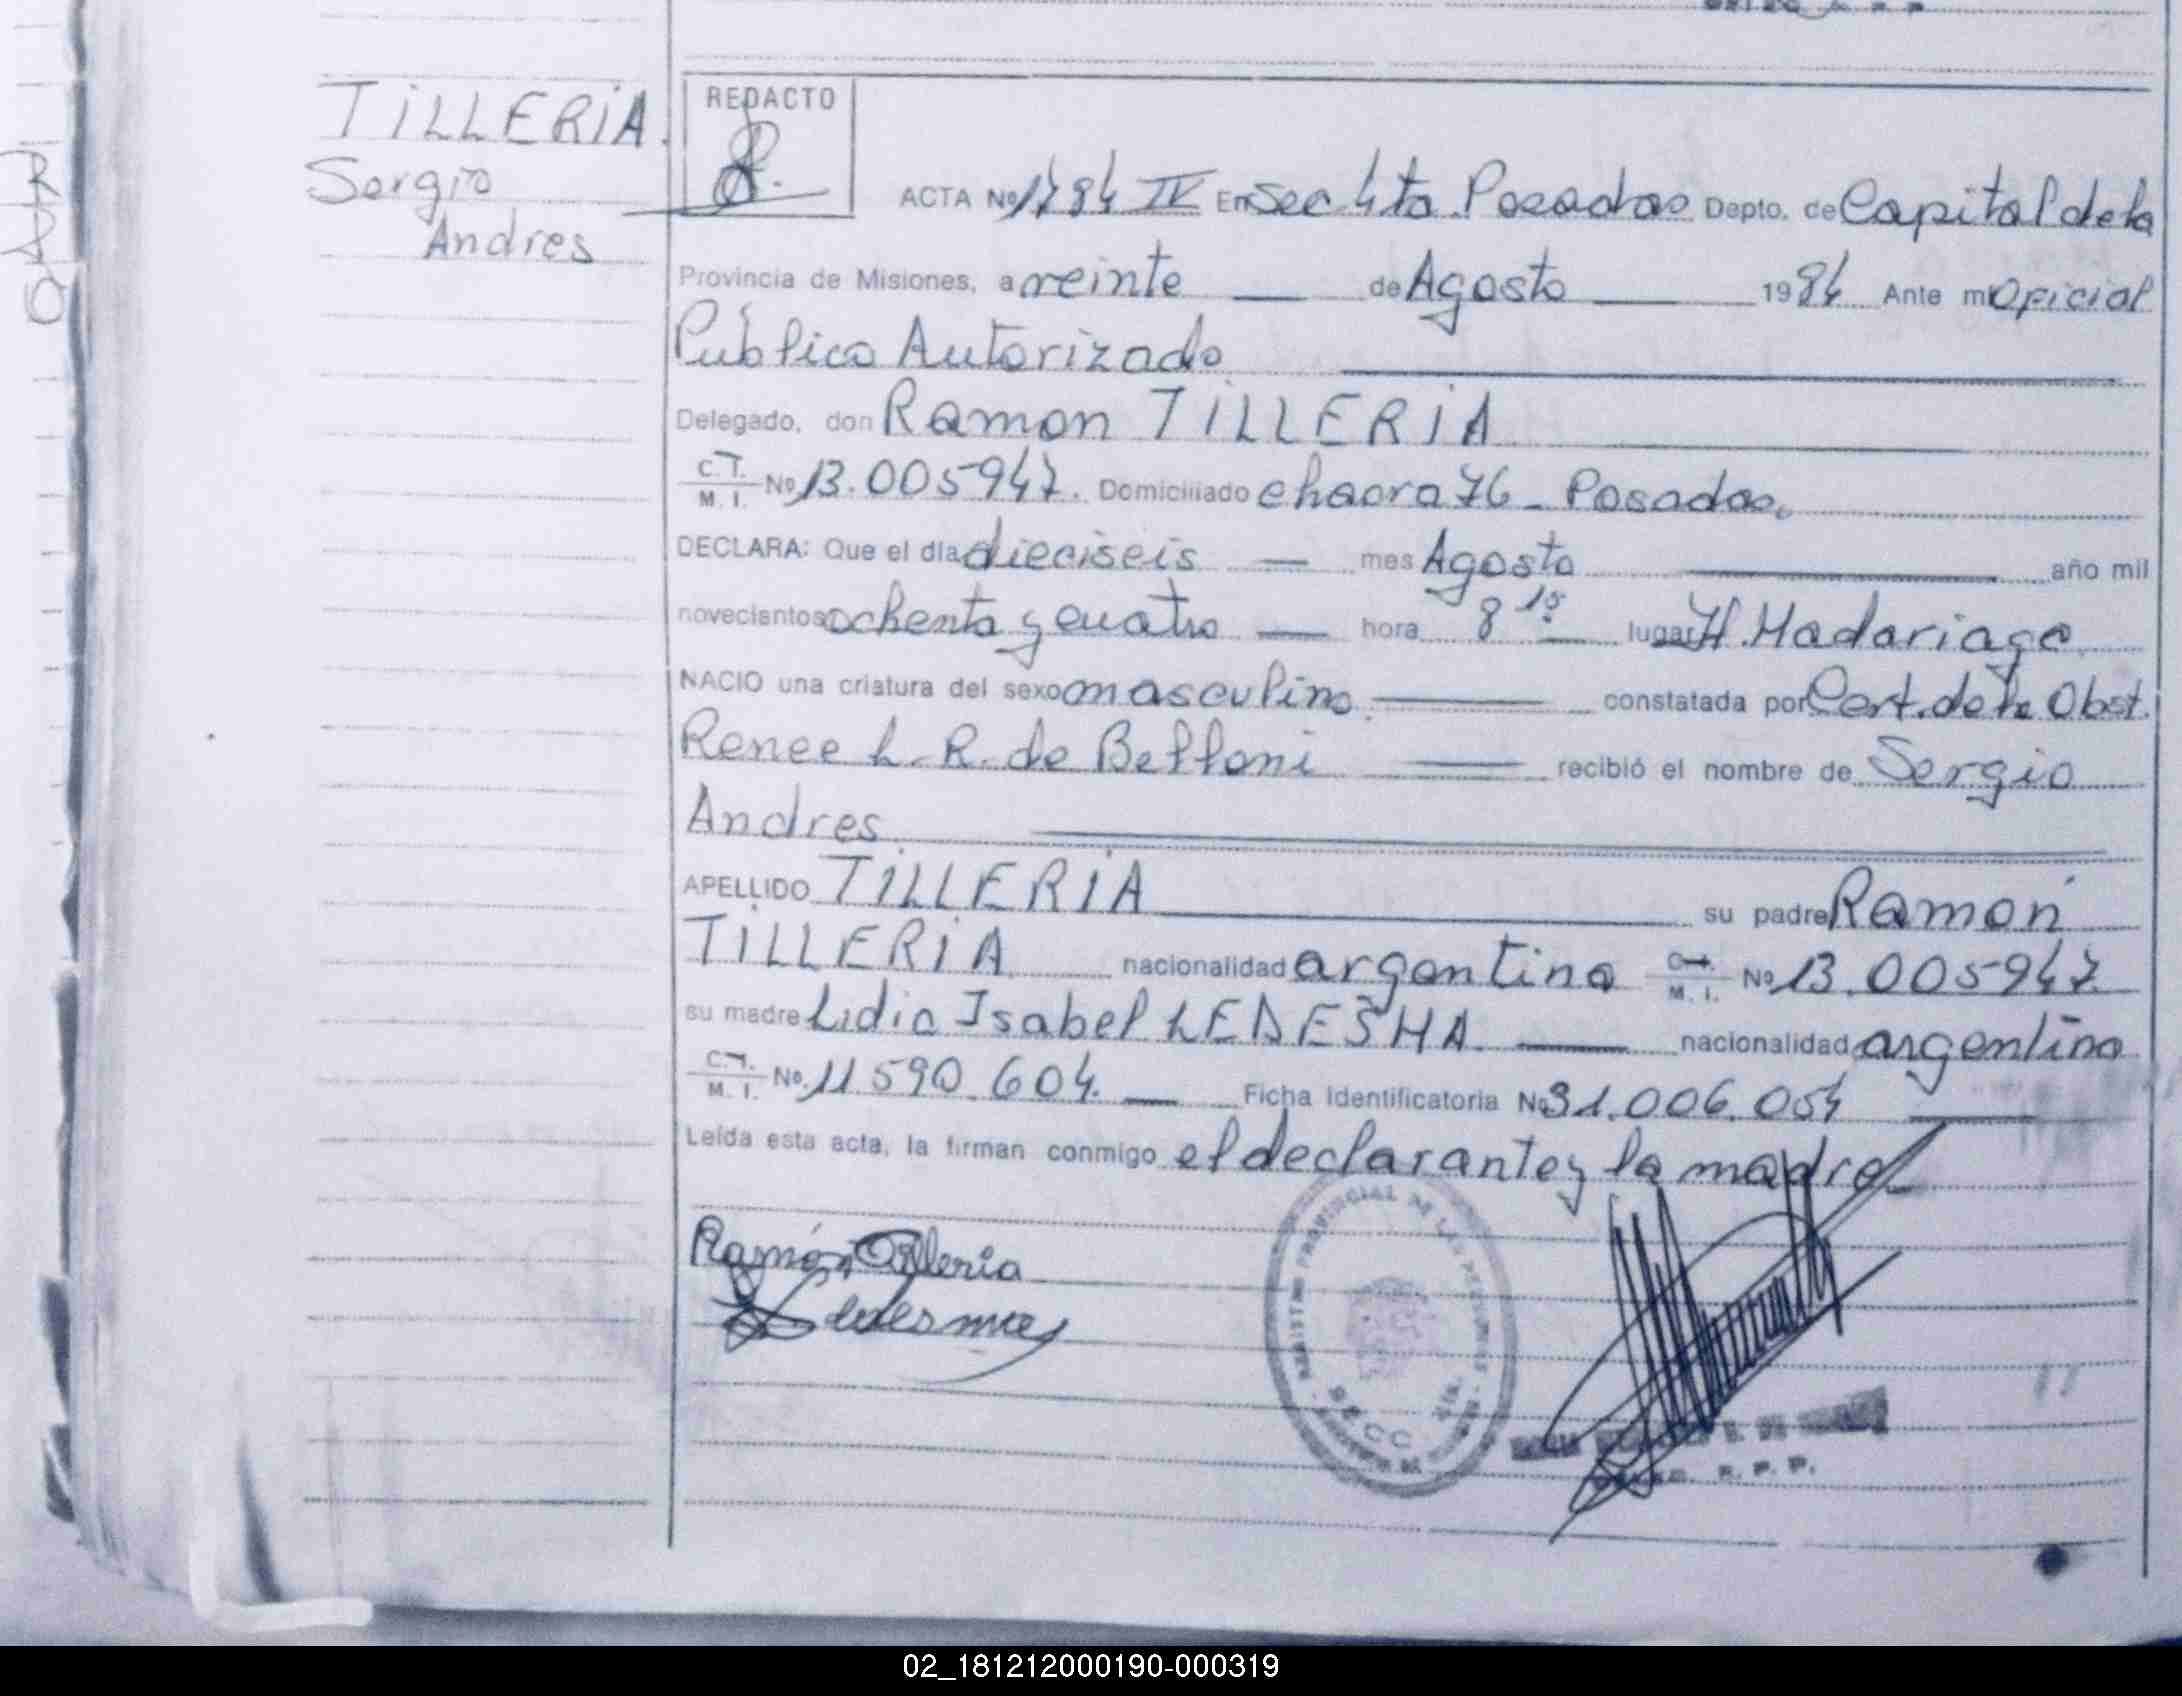 TILLERIA.
Sergio
Andres
REDACTO
ACTA Nº 1784 IV En Sec 4ta Posadas Depto. de Capital de la
Provincia de Misiones, a veinte de Agosto 1984 Ante mi Oficial
Público Autorizado
Delegado, don Ramon TILLERIA
C.I. M. I. Nº 13.005947. Domiciliado chacra 76 - Posadas.
DECLARA: Que el día dieciseis mes Agosto año mil
novecientos ochenta y cuatro hora 8 15 lugar H. Madariaga
NACIO una criatura del sexo masculino constatada por Cert. de la Obst.
Renee L. R. de Belloni recibió el nombre de Sergio
Andres
APELLIDO TILLERIA su padre Ramon
TILLERIA nacionalidad argentino C.I. M. I. Nº 13.005947.
su madre Lidia Isabel LEDESMA nacionalidad argentina
C.I. M. I. Nº 11590.604. Ficha Identificatoria Nº 31.006.054
Leída esta acta, la firman conmigo el declarante y la madre
Ramón Tilleria
Ledesma
REGISTRO PROVINCIAL DE LAS PERSONAS
SECC 4ta.
R. P. P.
02_181212000190-000319